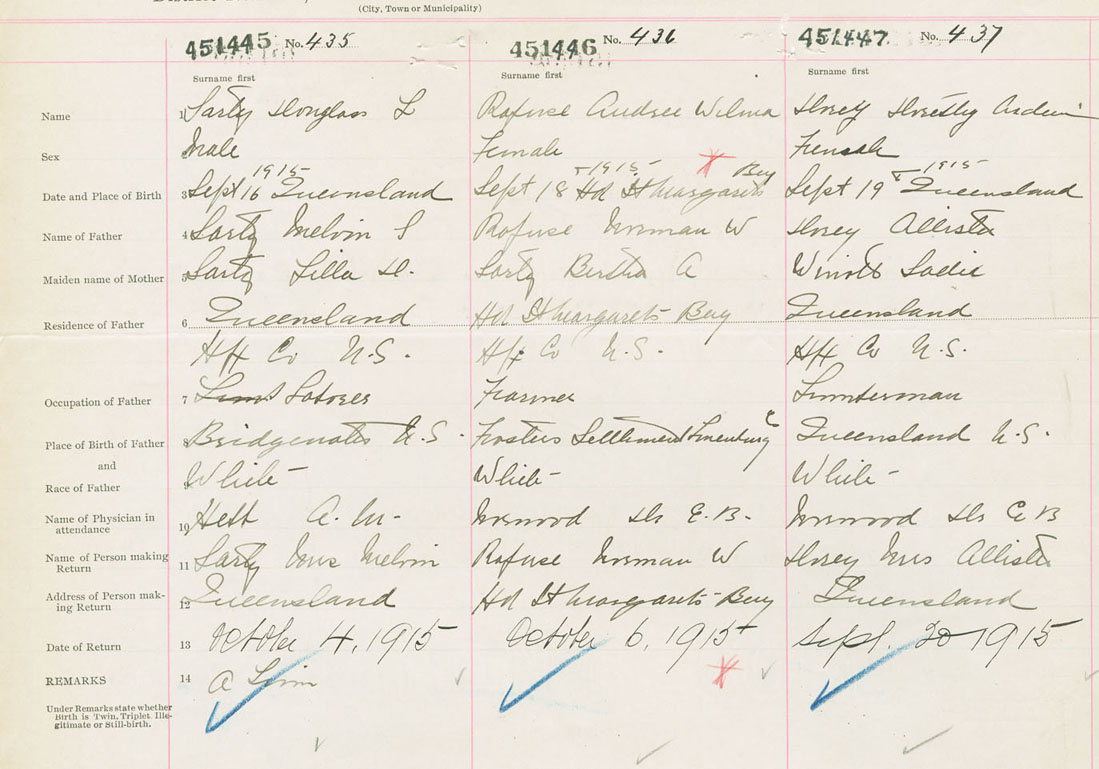 (City, Town or Municipality)
451445 No. 435 451446 No. 436 451447 No. 437
Surname first Surname first Surname first
Name 1 Sarty Douglass L Rafuse Audree Wilma Dorey Dorothy
Sex Male Female Female
Date and Place of Birth 3 Sept 16 1915 Queensland Sept 18 1915 Hd St Margarets Bay Sept 19 1915 Queensland
Name of Father 4 Sarty Melvin S Rafuse Norman W Dorey Allister
Maiden name of Mother 5 Sarty Lilla D. Sarty Bertha A Sadie
Residence of Father 6 Queensland Hd St Margarets Bay Queensland
Hfx Co N.S. Hfx Co N.S. Hfx Co N.S.
Occupation of Father 7 Laborer Farmer Lumberman
Place of Birth of Father 8 Bridgewater N.S. Fosters Settlement Lunenburg C Queensland N.S.
and
Race of Father 9 White White White
Name of Physician in
attendance 10 Hebb A. M. Norwood Dr E. B. Norwood Dr E B
Name of Person making
Return 11 Sarty Mrs Melvin Rafuse Norman W Dorey Mrs Allister
Address of Person mak-
ing Return 12 Queensland Hd St Margarets Bay Queensland
Date of Return 13 October 4, 1915 October 6, 1915 Sept. 20 1915
REMARKS 14 A
Under Remarks state whether
Birth is Twin, Triplet, Ille-
gitimate or Still-birth.